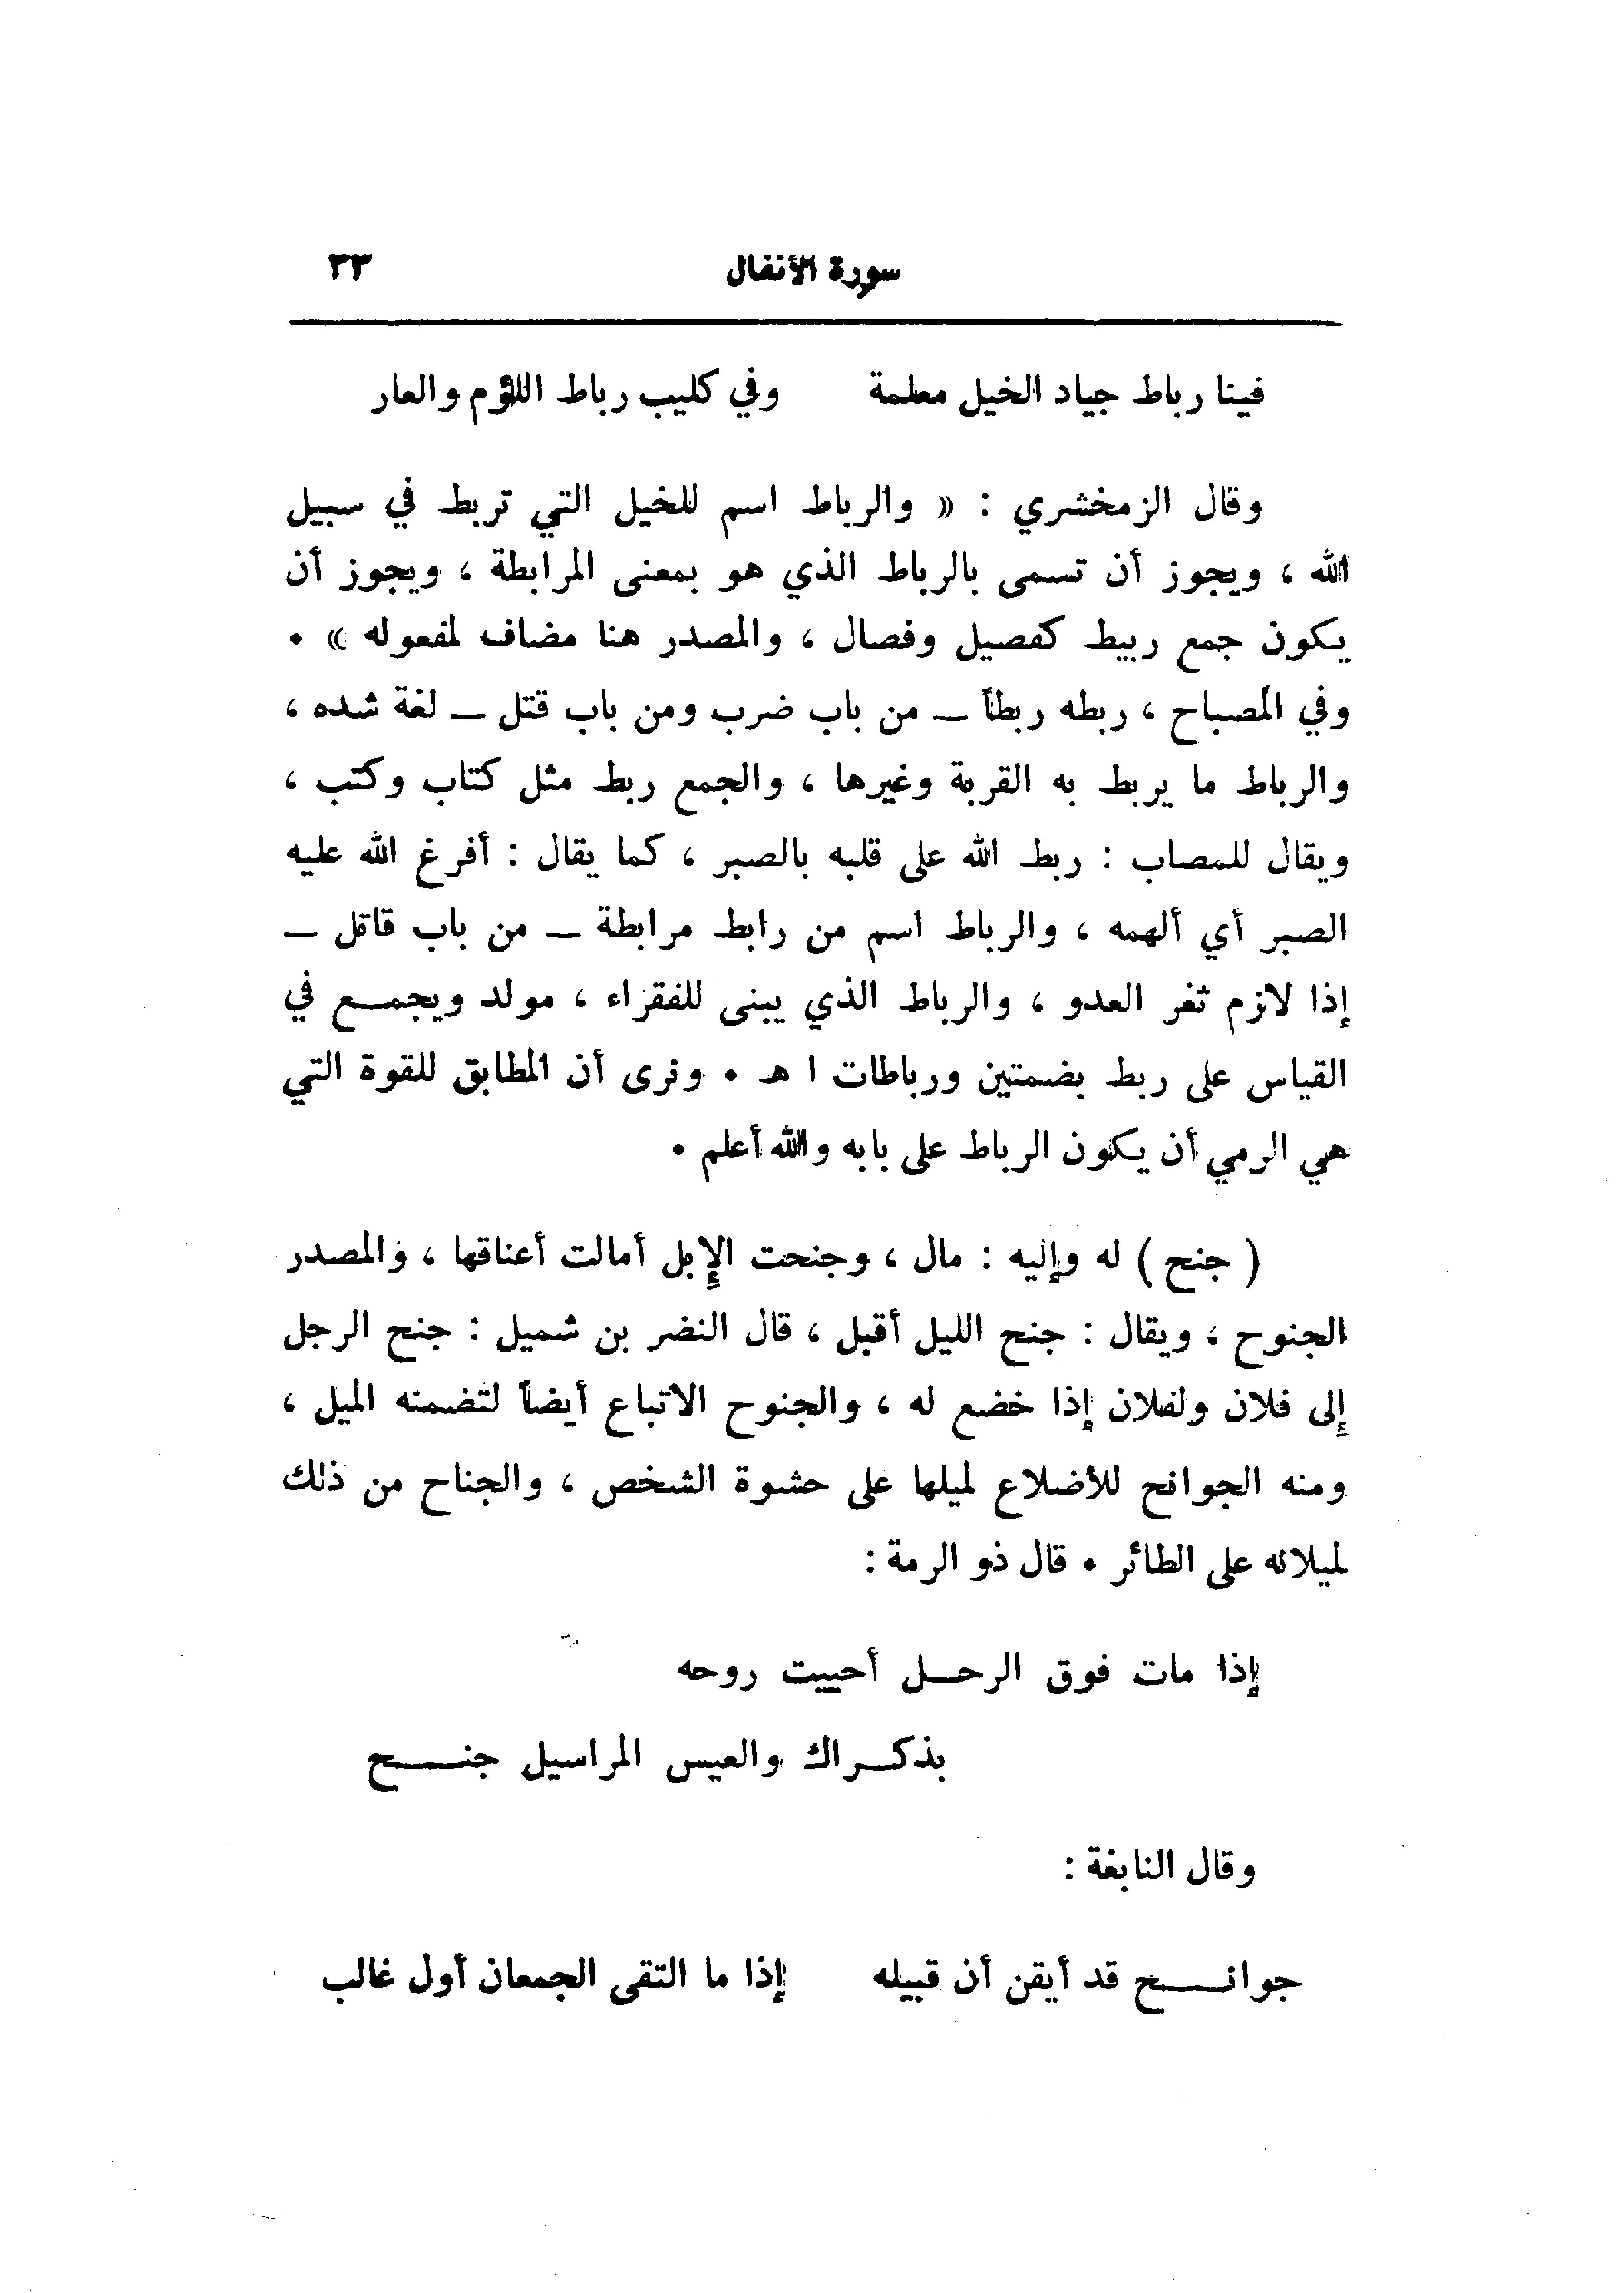 سورة الأنفال ٣٣
فينا رباط جياد الخيل معلمة وفي كليب رباط اللؤم والعار
وقال الزمخشري : « والرباط اسم للخيل التي تربط في سبيل
الله ، ويجوز أن تسمى بالرباط الذي هو بمعنى المرابطة ، ويجوز أن
يكون جمع ربيط كفصيل وفصال ، والمصدر هنا مضاف لمفعوله » .
وفي المصباح ، ربطه ربطاً ــ من باب ضرب ومن باب قتل ــ لغة شده ،
والرباط ما يربط به القربة وغيرها ، والجمع ربط مثل كتاب وكتب ،
ويقال للمصاب : ربط الله على قلبه بالصبر ، كما يقال : أفرغ الله عليه
الصبر أي ألهمه ، والرباط اسم من رابط مرابطة ــ من باب قاتل ــ
إذا لازم ثغر العدو ، والرباط الذي يبنى للفقراء ، مولد ويجمــع في
القياس على ربط بضمتين ورباطات ا هـ . ونرى أن المطابق للقوة التي
هي الرمي أن يكون الرباط على بابه والله أعلم .
( جنح ) له وإليه : مال ، وجنحت الإبل أمالت أعناقها ، والمصدر
الجنوح ، ويقال : جنح الليل أقبل ، قال النضر بن شميل : جنح الرجل
إلى فلان ولفلان إذا خضع له ، والجنوح الاتباع أيضاً لتضمنه الميل ،
ومنه الجوانح للأضلاع لميلها على حشوة الشخص ، والجناح من ذلك
لميلانه على الطائر . قال ذو الرمة :
إذا مات فوق الرحــل أحييت روحه
بذكــراك والعيس المراسيل جنــــح
وقال النابغة :
جوانــــح قد أيقن أن قبيله إذا ما التقى الجمعان أول غالب